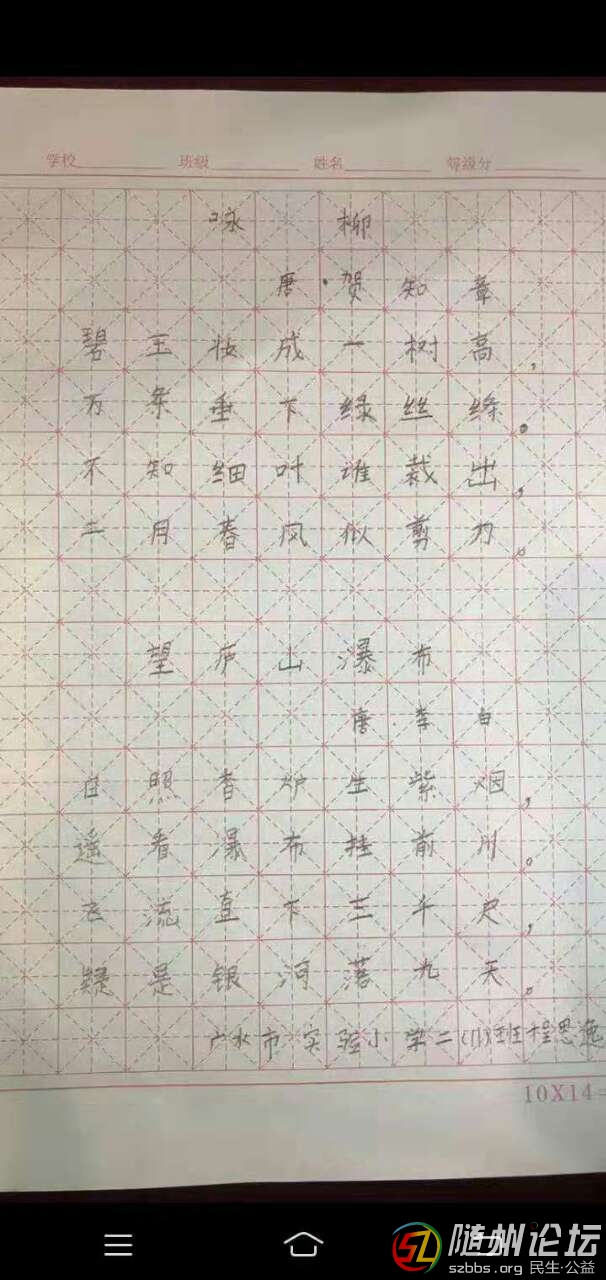 学校 班级 姓名 等级分
咏柳
唐·贺知章
碧玉妆成一树高，
万条垂下绿丝绦。
不知细叶谁裁出，
二月春风似剪刀。
望庐山瀑布
唐·李白
日照香炉生紫烟，
遥看瀑布挂前川。
飞流直下三千尺，
疑是银河落九天。
广水市实验小学二(1)班程思逸
10X14=
随州论坛
szbbs.org 民生·公益